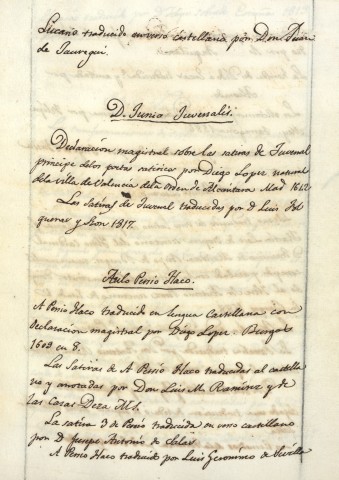 Lucano traducido en verso castellano por Don Juan
de Jauregui.
D. Junio Juvenalis.
Declaracion magistral sobre las satiras de Juvenal
principe de los poetas satiricos por Diego Lopez natural
de la villa de Valencia de la orden de Alcantara Mad 1642
Las Satiras de Juvenal traducidas por D Luis Fol
gueras y Sion 1817.
Aulo Persio Flaco.
A Persio Flaco traducido en lengua Castellana con
declaracion magistral por Diego Lopez. Burgos
1609 en 8.
Las Satiras de A Persio Flaco traducidas al castella
no y anotadas por Don Luis M. Ramirez y de
las Casas Deza MS.
La satira 3 de Persio traducida en verso castellano
por D. Antonio de
A Persio Flaco traducido por Luis Geronimo de Sevilla